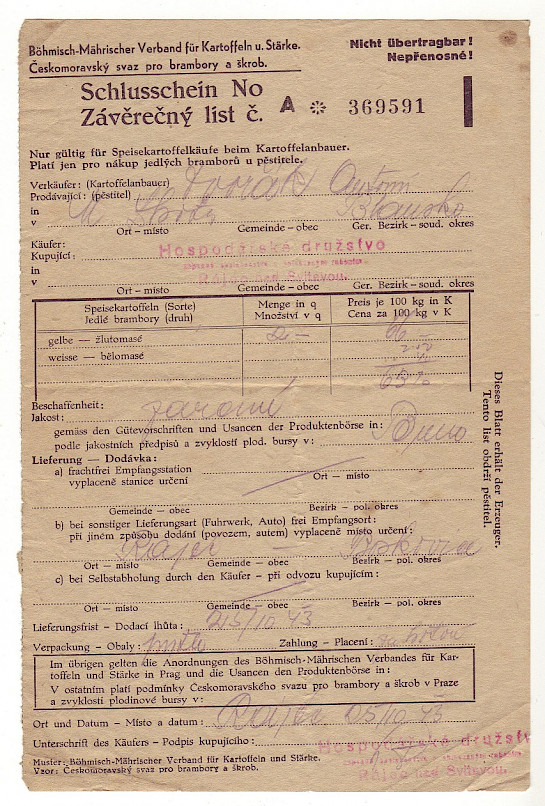 Böhmisch-Mährischer Verband für Kartoffeln u. Stärke.
Českomoravský svaz pro brambory a škrob.
Nicht übertragbar!
Nepřenosné!
Schlusschein No
Závěrečný list č. A * 369591
Nur gültig für Speisekartoffelkäufe beim Kartoffelanbauer.
Platí jen pro nákup jedlých bramborů u pěstitele.
Verkäufer: (Kartoffelanbauer)
Prodávající: (pěstitel) Dvořák Antonín
in
v Blansko
Ort – místo Gemeinde – obec Ger. Bezirk – soud. okres
Käufer:
Kupující: Hospodářské družstvo
Rájec nad Svitavou.
in
v
Ort – místo Gemeinde – obec Ger. Bezirk – soud. okres
Speisekartoffeln (Sorte)
Jedlé brambory (druh)
Menge in q
Množství v q
Preis je 100 kg in K
Cena za 100 kg v K
gelbe — žlutomasé 2 –
weisse — bělomasé
Beschaffenheit:
Jakost: zdravé
gemäss den Gütevorschriften und Usancen der Produktenbörse in:
podle jakostních předpisů a zvyklostí plod. bursy v: Brno
Lieferung — Dodávka:
a) frachtfrei Empfangsstation
vyplaceně stanice určení
Ort – místo
Gemeinde – obec Bezirk – pol. okres
b) bei sonstiger Lieferungsart (Fuhrwerk, Auto) frei Empfangsort:
při jiném způsobu dodání (povozem, autem) vyplaceně místo určení:
Rájec –
Ort – místo Gemeinde – obec Bezirk – pol. okres
c) bei Selbstabholung durch den Käufer – při odvozu kupujícím:
Ort – místo Gemeinde – obec Bezirk – pol. okres
Lieferungsfrist – Dodací lhůta:
Verpackung – Obaly: Zahlung – Placení:
Im übrigen gelten die Anordnungen des Böhmisch-Mährischen Verbandes für Kar-
toffeln und Stärke in Prag und die Usancen der Produktenbörse in:
V ostatním platí podmínky Českomoravského svazu pro brambory a škrob v Praze
a zvyklosti plodinové bursy v:
Ort und Datum – Místo a datum:
Unterschrift des Käufers – Podpis kupujícího:
Hospodářské družstv
Rájec nad Svitavou.
Muster: Böhmisch-Mährischer Verband für Kartoffeln und Stärke.
Vzor: Českomoravský svaz pro brambory a škrob.
Dieses Blatt erhält der Erzeuger.
Tento list obdrží pěstitel.